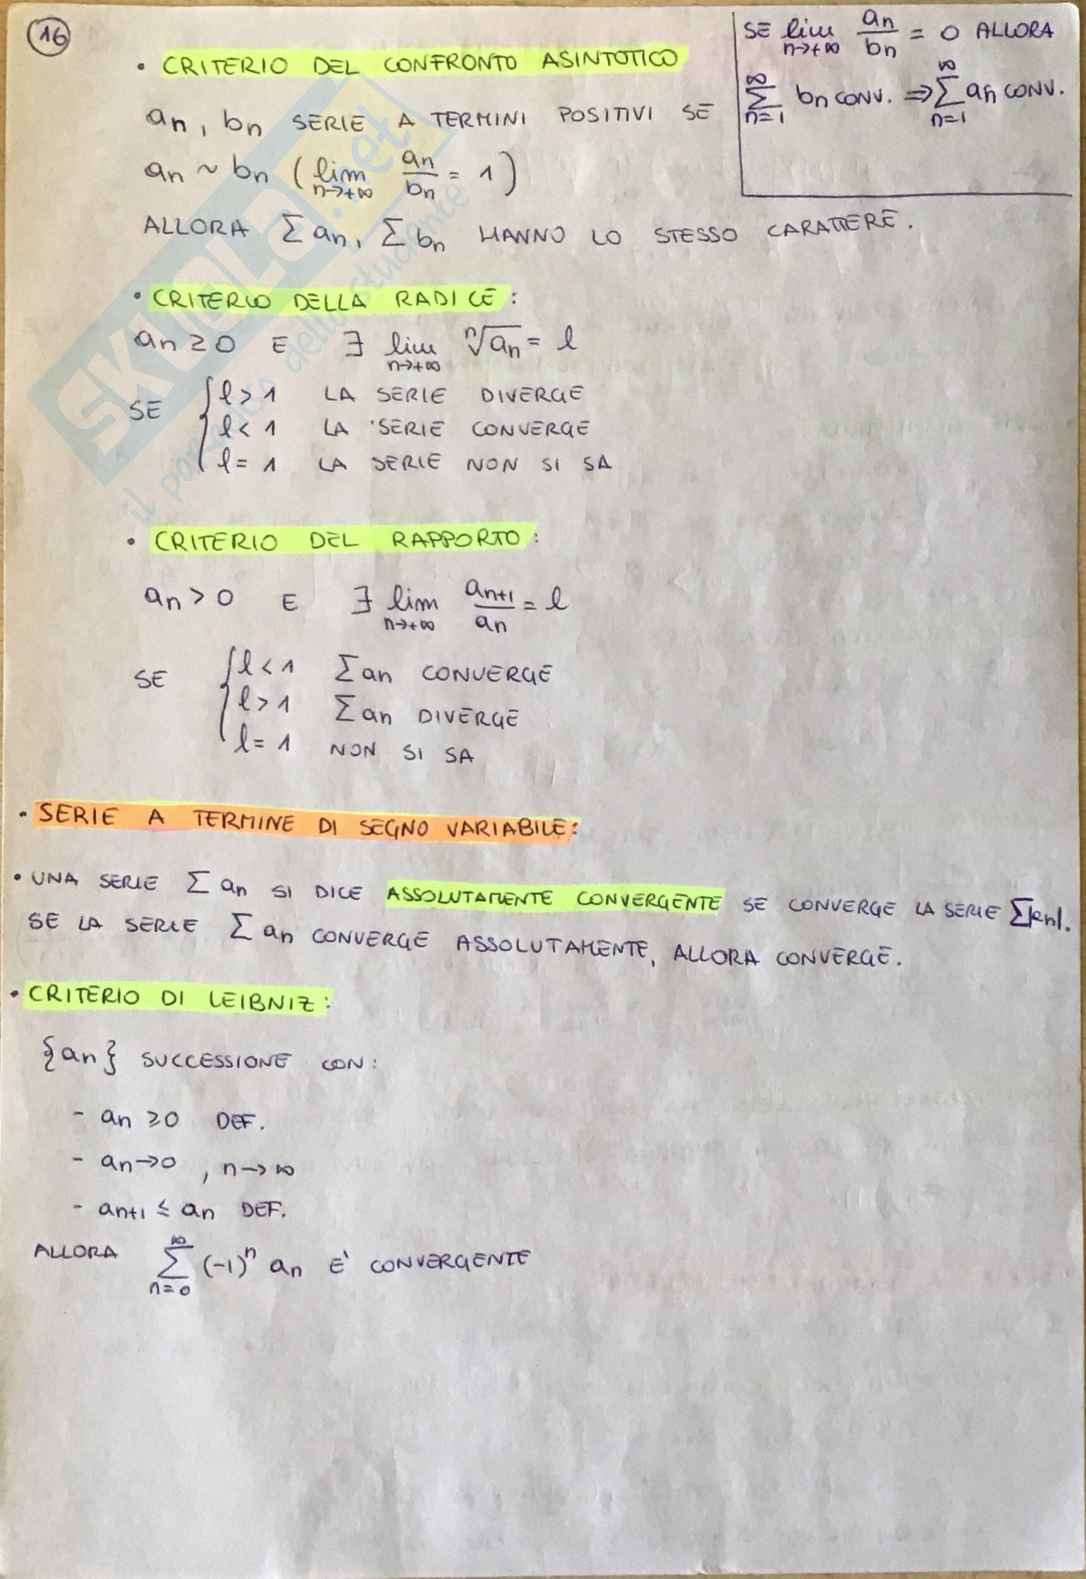 16
SE lim n→+∞ an/bn = 0 ALLORA
∞Σn=1 bn CONV. ⇒ ∞Σn=1 an CONV.
• CRITERIO DEL CONFRONTO ASINTOTICO
an, bn SERIE A TERMINI POSITIVI SE
an ~ bn (lim n→+∞ an/bn = 1)
ALLORA Σ an, Σ bn HANNO LO STESSO CARATTERE.
• CRITERIO DELLA RADICE:
an ≥ 0 E ∃ lim n→+∞ ⁿ√an = l
SE { l > 1 LA SERIE DIVERGE
l < 1 LA SERIE CONVERGE
l = 1 LA SERIE NON SI SA
• CRITERIO DEL RAPPORTO:
an > 0 E ∃ lim n→+∞ an+1/an = l
SE { l < 1 Σ an CONVERGE
l > 1 Σ an DIVERGE
l = 1 NON SI SA
• SERIE A TERMINE DI SEGNO VARIABILE:
• UNA SERIE Σ an SI DICE ASSOLUTAMENTE CONVERGENTE SE CONVERGE LA SERIE Σ|an|.
SE LA SERIE Σ an CONVERGE ASSOLUTAMENTE, ALLORA CONVERGE.
• CRITERIO DI LEIBNIZ:
{an} SUCCESSIONE CON:
- an ≥ 0 DEF.
- an → 0, n → ∞
- an+1 ≤ an DEF.
ALLORA ∞Σn=0 (-1)ⁿ an E' CONVERGENTE
SKUOLA.net
il portale dello studente